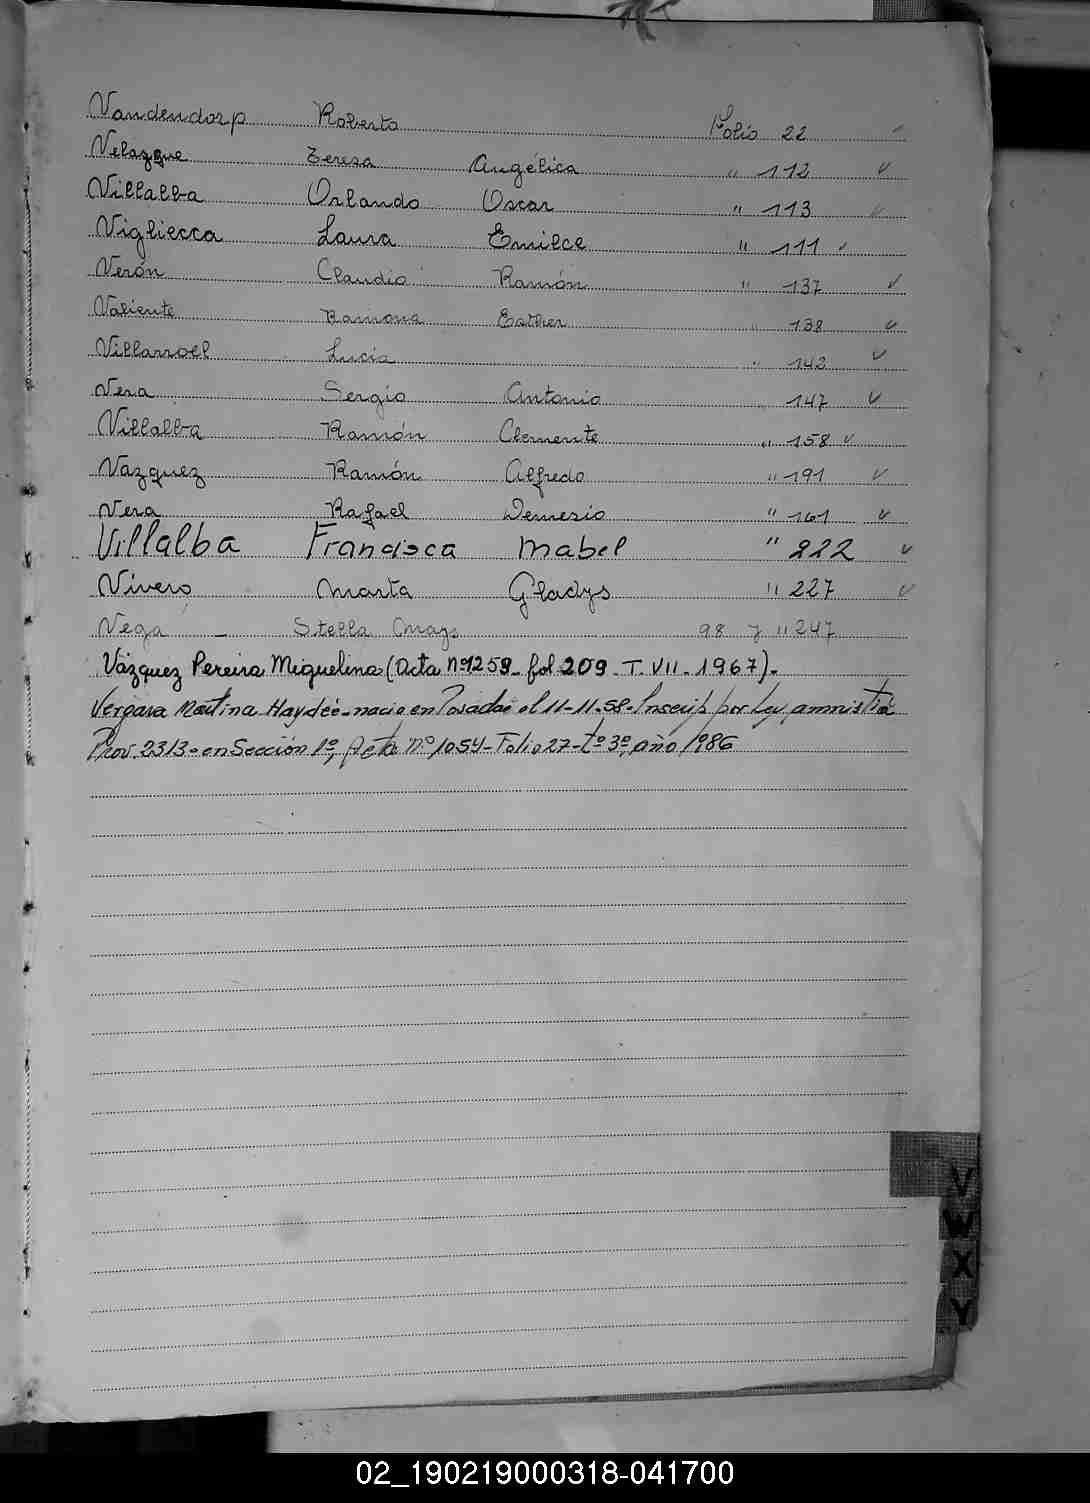 Vandendorp Roberto Folio 22
Velazque Teresa Angélica " 112
Villalba Orlando Oscar " 113
Vigliecca Laura Emilce " 111
Verón Claudio Ramón " 137
Valiente Ramona Esther " 138
Villarroel Lucia " 143
Vera Sergio Antonio " 147
Villalba Ramón Clemente " 158
Vazquez Ramón Alfredo " 191
Vera Rafael Demesio " 161
Villalba Francisca Mabel " 222
Vivero Marta Gladys " 227
Vega - Stella 98 y " 247
Vázquez Pereira Miguelina (Acta nº 1259 - fol 209 - T. VII - 1967).
Vergara Martina Haydée - nacio en Posadas el 11-11-58 - Inscrip por Ley amnistia
Prov. 2313 - en Sección 1º, Acta Nº 1054 - Folio 27 - tº 3º, año 1986
V
W
X
Y
02_190219000318-041700